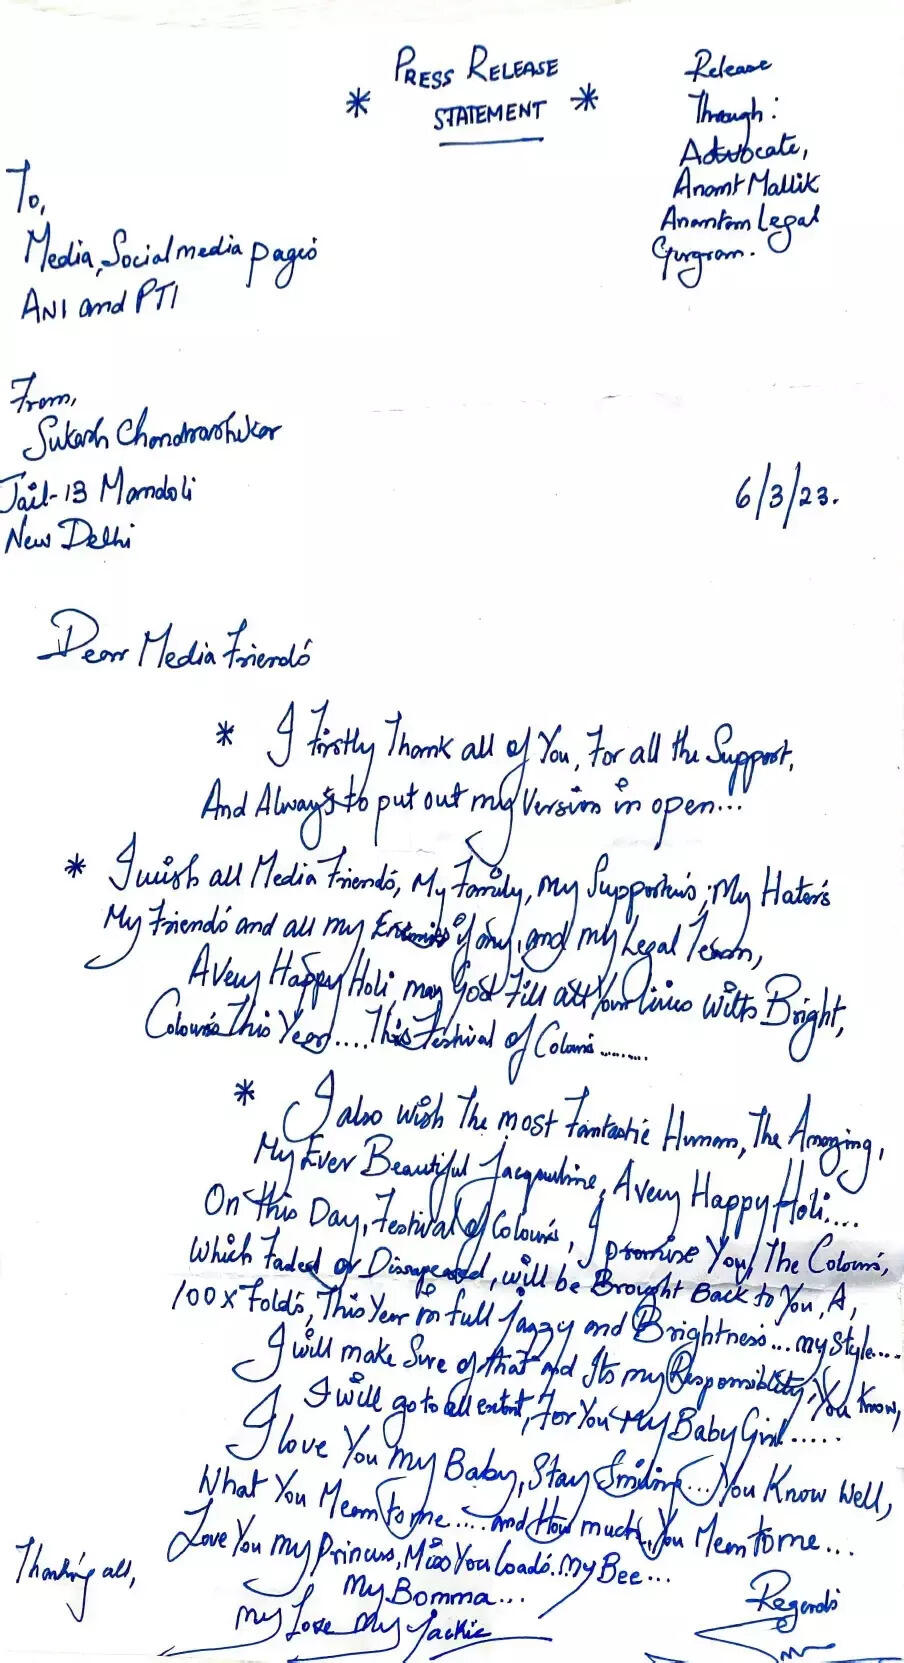 * PRESS RELEASE
STATEMENT *
Release
Through:
Advocate,
Anant Mallik
Anantam Legal
Gurgram.
To,
Media, Social media pages
ANI and PTI
From,
Sukash Chandrashekar
Jail-13 Mandoli
New Delhi
6/3/23.
Dear Media Friends
* I Firstly Thank all of You, For all the Support,
And Always to put out my Version in open...
* I wish all Media Friends, My Family, My Supporters, My Haters
My Friends and all my Enemies if any, and my Legal Team,
A Very Happy Holi, may God Fill all Your lives With Bright,
Colours This Year.... This Festival of Colours.........
* I also wish The most Fantastic Human, The Amazing,
My Ever Beautiful Jacqueline, A Very Happy Holi....
On This Day, Festival of Colours, I promise You, The Colours,
Which Faded or Disappeared, will be Brought Back to You, A,
100 x Folds, This Year in full Jazzy and Brightness... my Style....
I will make Sure of that and Its my Responsiblity, You Know,
I will go to all extent, For You My Baby Girl.....
I love You My Baby, Stay Smiling... You Know Well,
What You Mean to me.... and How much You Mean to me...
Love You my Princess, Miss You Loads. My Bee...
My Bomma...
My Love My Jackie
Thanking all,
Regards